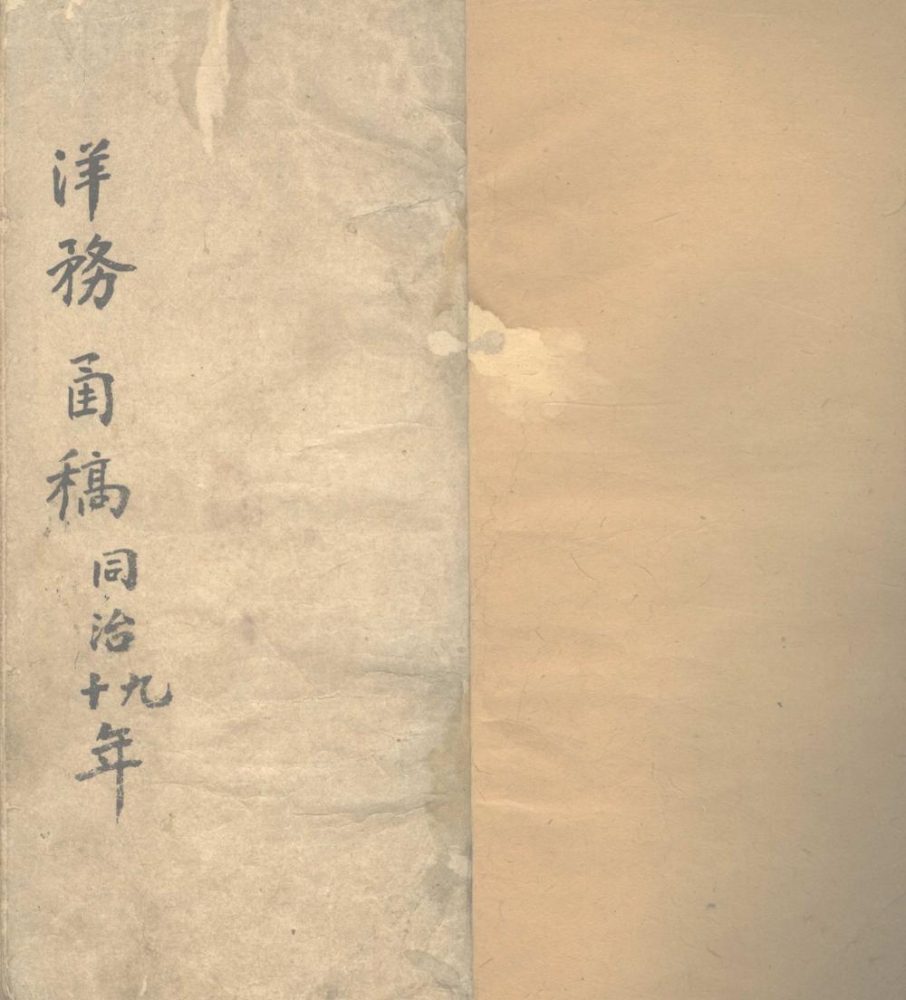 洋務函稿 同治九十年